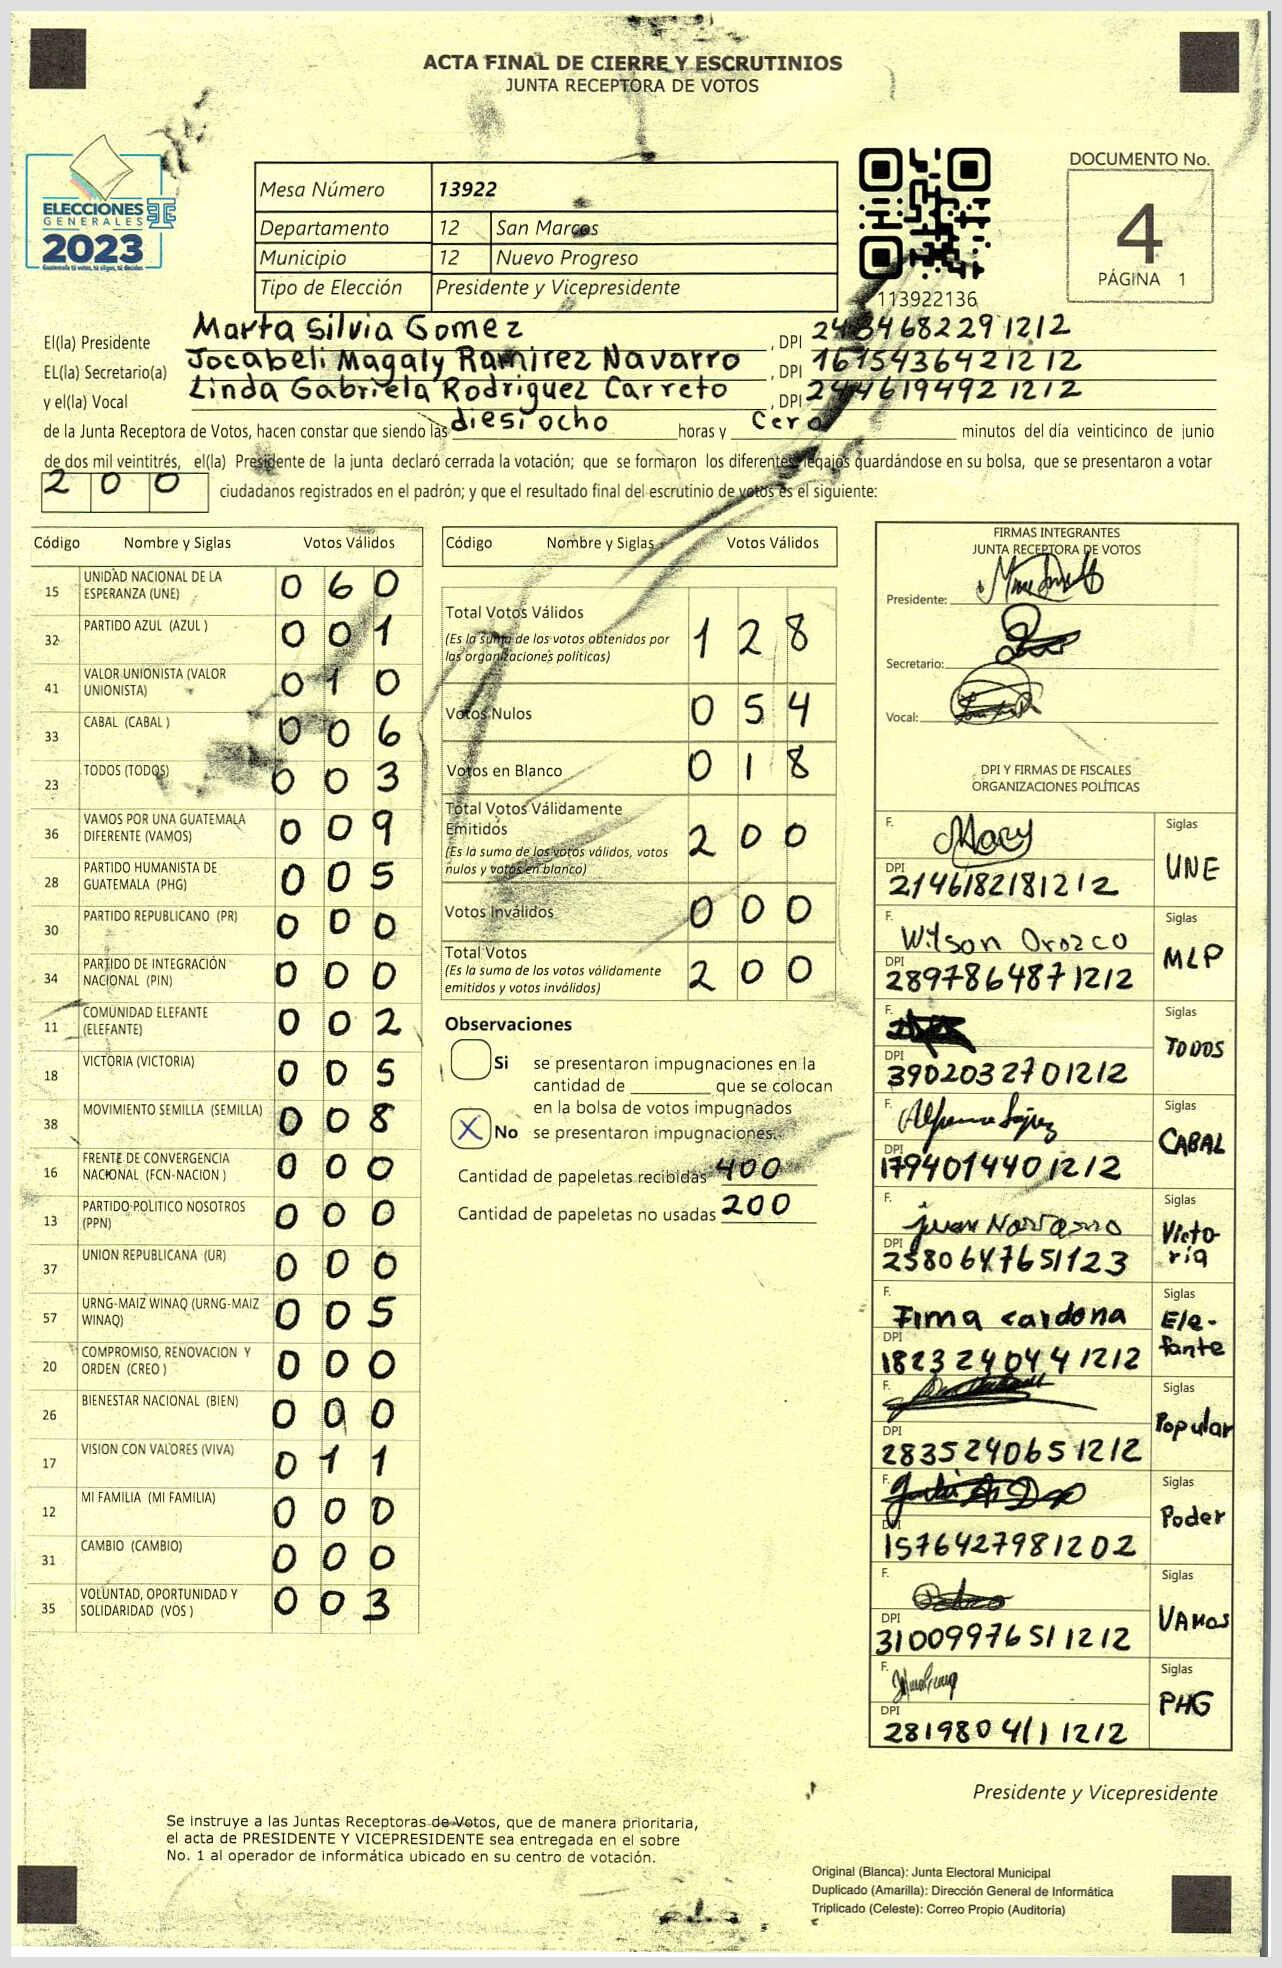 ACTA FINAL DE CIERRE Y ESCRUTINIOS
JUNTA RECEPTORA DE VOTOS
ELECCIONES
GENERALES
2023
Guatemala tú votas, tú eliges, tú decides
Mesa Número 13922
Departamento 12 San Marcos
Municipio 12 Nuevo Progreso
Tipo de Elección Presidente y Vicepresidente
113922136
DOCUMENTO No.
4
PÁGINA 1
El(la) Presidente Marta Silvia Gomez, DPI 2484682291212
EL(la) Secretario(a) Jocabeli Magaly Ramirez Navarro, DPI 1615436421212
y el(la) Vocal Linda Gabriela Rodriguez Carreto, DPI 2444619492 1212
de la Junta Receptora de Votos, hacen constar que siendo las diesi ocho horas y Cero minutos del día veinticinco de junio
de dos mil veintitrés, el(la) Presidente de la junta declaró cerrada la votación; que se formaron los diferentes legajos guardándose en su bolsa, que se presentaron a votar
200 ciudadanos registrados en el padrón; y que el resultado final del escrutinio de votos es el siguiente:
Código Nombre y Siglas Votos Válidos
15 UNIDAD NACIONAL DE LA ESPERANZA (UNE) 060
32 PARTIDO AZUL (AZUL ) 001
41 VALOR UNIONISTA (VALOR UNIONISTA) 010
33 CABAL (CABAL ) 006
23 TODOS (TODOS) 003
36 VAMOS POR UNA GUATEMALA DIFERENTE (VAMOS) 009
28 PARTIDO HUMANISTA DE GUATEMALA (PHG) 005
30 PARTIDO REPUBLICANO (PR) 000
34 PARTIDO DE INTEGRACIÓN NACIONAL (PIN) 000
11 COMUNIDAD ELEFANTE (ELEFANTE) 002
18 VICTORIA (VICTORIA) 005
38 MOVIMIENTO SEMILLA (SEMILLA) 008
16 FRENTE DE CONVERGENCIA NACIONAL (FCN-NACION ) 000
13 PARTIDO POLITICO NOSOTROS (PPN) 000
37 UNION REPUBLICANA (UR) 000
57 URNG-MAIZ WINAQ (URNG-MAIZ WINAQ) 005
20 COMPROMISO, RENOVACION Y ORDEN (CREO ) 000
26 BIENESTAR NACIONAL (BIEN) 000
17 VISION CON VALORES (VIVA) 011
12 MI FAMILIA (MI FAMILIA) 000
31 CAMBIO (CAMBIO) 000
35 VOLUNTAD, OPORTUNIDAD Y SOLIDARIDAD (VOS ) 003
Código Nombre y Siglas Votos Válidos
Total Votos Válidos 128
(Es la suma de los votos obtenidos por
las organizaciones políticas)
Votos Nulos 054
Votos en Blanco 018
Total Votos Válidamente
Emitidos 200
(Es la suma de los votos válidos, votos
nulos y votos en blanco)
Votos Inválidos 000
Total Votos 200
(Es la suma de los votos válidamente
emitidos y votos inválidos)
Observaciones
Si se presentaron impugnaciones en la
cantidad de que se colocan
en la bolsa de votos impugnados
X No se presentaron impugnaciones.
Cantidad de papeletas recibidas 400
Cantidad de papeletas no usadas 200
FIRMAS INTEGRANTES
JUNTA RECEPTORA DE VOTOS
Presidente:
Secretario:
Vocal:
DPI Y FIRMAS DE FISCALES
ORGANIZACIONES POLÍTICAS
F. Mary Siglas
DPI 2146182181212 UNE
F. Wilson Orozco Siglas
DPI 2897864871212 MLP
F. Siglas
DPI 3902032701212 TODOS
F. Siglas
DPI 1794014401212 CABAL
F. juan Navarro Siglas
DPI 2380647651123 Victoria
F. Irma cardona Siglas
DPI 1823240441212 Elefante
F. Siglas
DPI 2835240651212 Popular
F. Siglas
DPI 1576427981202 Poder
F. Pedro Siglas
DPI 31009976511212 VAMOS
F. Siglas
DPI 2819804111212 PHG
Presidente y Vicepresidente
Se instruye a las Juntas Receptoras de Votos, que de manera prioritaria,
el acta de PRESIDENTE Y VICEPRESIDENTE sea entregada en el sobre
No. 1 al operador de informática ubicado en su centro de votación.
Original (Blanca): Junta Electoral Municipal
Duplicado (Amarilla): Dirección General de Informática
Triplicado (Celeste): Correo Propio (Auditoría)